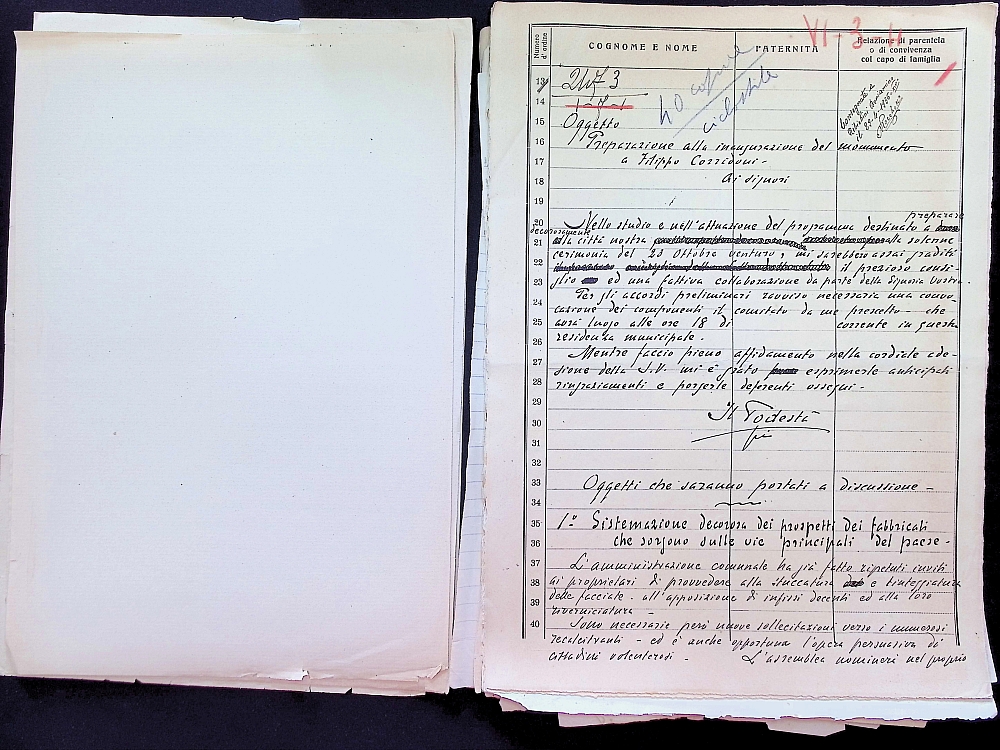 VI-3-11
Numero d'ordine
COGNOME E NOME
PATERNITÀ
Relazione di parentela
o di convivenza
col capo di famiglia
13
14
15
16
17
18
19
20
21
22
23
24
25
26
27
28
29
30
31
32
33
34
35
36
37
38
39
40
40 copie
ciclostile
Consegnata a
il
Oggetto
Preparazione alla inaugurazione del monumento
a Filippo Corridoni -
Ai Signori
preparare
Nello studio e nell'attuazione del programma destinato a
decorosamente
alla città nostra alla solenne
cerimonia del 23 Ottobre venturo, mi sarebbero assai graditi
il prezioso consi-
glio ed una fattiva collaborazione da parte della Signoria Vostra.
Per gli accordi preliminari ravviso necessaria una convo-
cazione dei componenti il comitato da me prescelto - che
avrà luogo alle ore 18 di corrente in questa
residenza municipale.
Mentre faccio pieno affidamento nella cordiale ade-
sione della S.V. mi è grato esprimerle anticipati
ringraziamenti e porgerle deferenti ossequi -
Il Podestà
Oggetti che saranno portati a discussione -
1º Sistemazione decorosa dei prospetti dei fabbricati
che sorgono sulle vie principali del paese -
L'amministrazione comunale ha già fatto ripetuti inviti
ai proprietari di provvedere alla stuccatura e tinteggiatura
delle facciate - all'apposizione di infissi decenti ed alla loro
riverniciatura -
Sono necessarie però nuove sollecitazioni verso i numerosi
recalcitranti - ed è anche opportuna l'opera persuasiva di
cittadini volenterosi - L'assemblea nominerà nel proprio